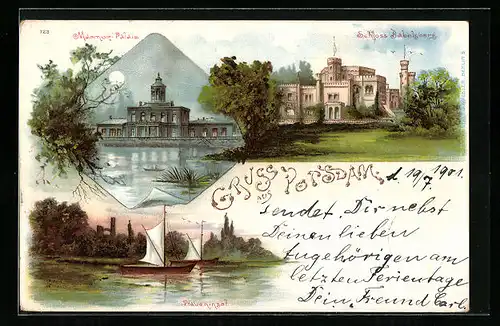 123
Marmor-Palais
Schloss Babelsberg
Gruss aus Potsdam, d. 19/7 1901.
Sendet Dir nebst
Deinen lieben
Angehörigen am
letzten Ferientage
Dein Freund Carl.
Pfaueninsel